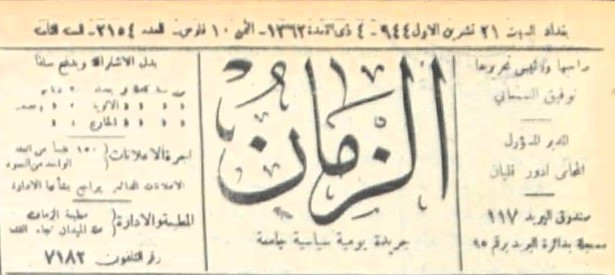 بغداد السبت ٢١ تشرين الاول ٩٤٤ - ٤ ذي القعدة ١٣٦٣ - الثمن ١٠ فلوس - العدد ٢١٥٤ - السنة الثامنة
رئيسها والمهيمن تحريرها
توفيق السمعاني
المدير المسؤول
المحامي ادور قليان
صندوق البريد ١١٧
مسجلة بدائرة البريد برقم ٩٥
الزمان
جريدة يومية سياسية جامعة
بدل الاشتراك ويدفع سلفاً
اجرة الاعلانات
١٥٠ فلساً عن العقد
الواحد من العمود
الاعلانات يراجع بشأنها الادارة
المطبعة والادارة
مطبعة الزمان
رقم التلفون ٧١٨٢